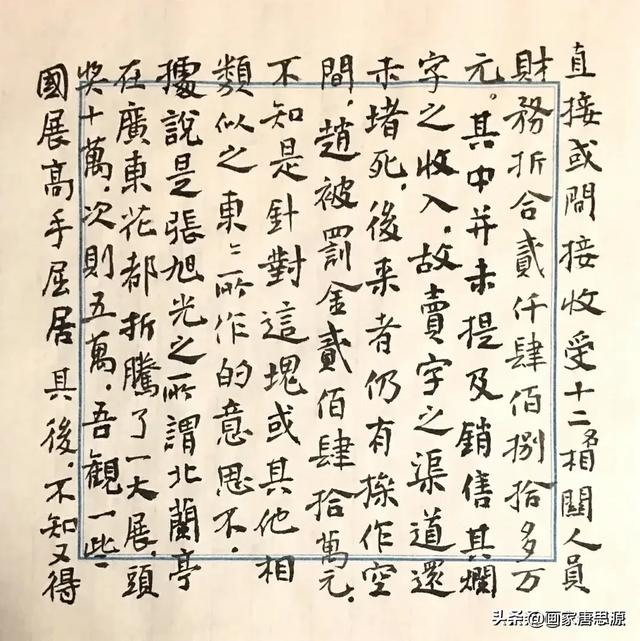 直接或間接收受十二名相關人員
財務折合貳仟肆佰捌拾多万
元。其中并未提及銷售其爛
字之收入，故賣字之渠道還
未堵死，後来者仍有操作空
間，趙被罰金貳佰肆拾萬元，
不知是針對這塊或其他相
類似之東：所作的意思不，
據說是張旭光之所謂北蘭亭
在廣東花都折騰了一大展，頭
奖十萬，次則五萬，吾觀一些
國展高手屈居其後，不知又得
头条@画家唐思源